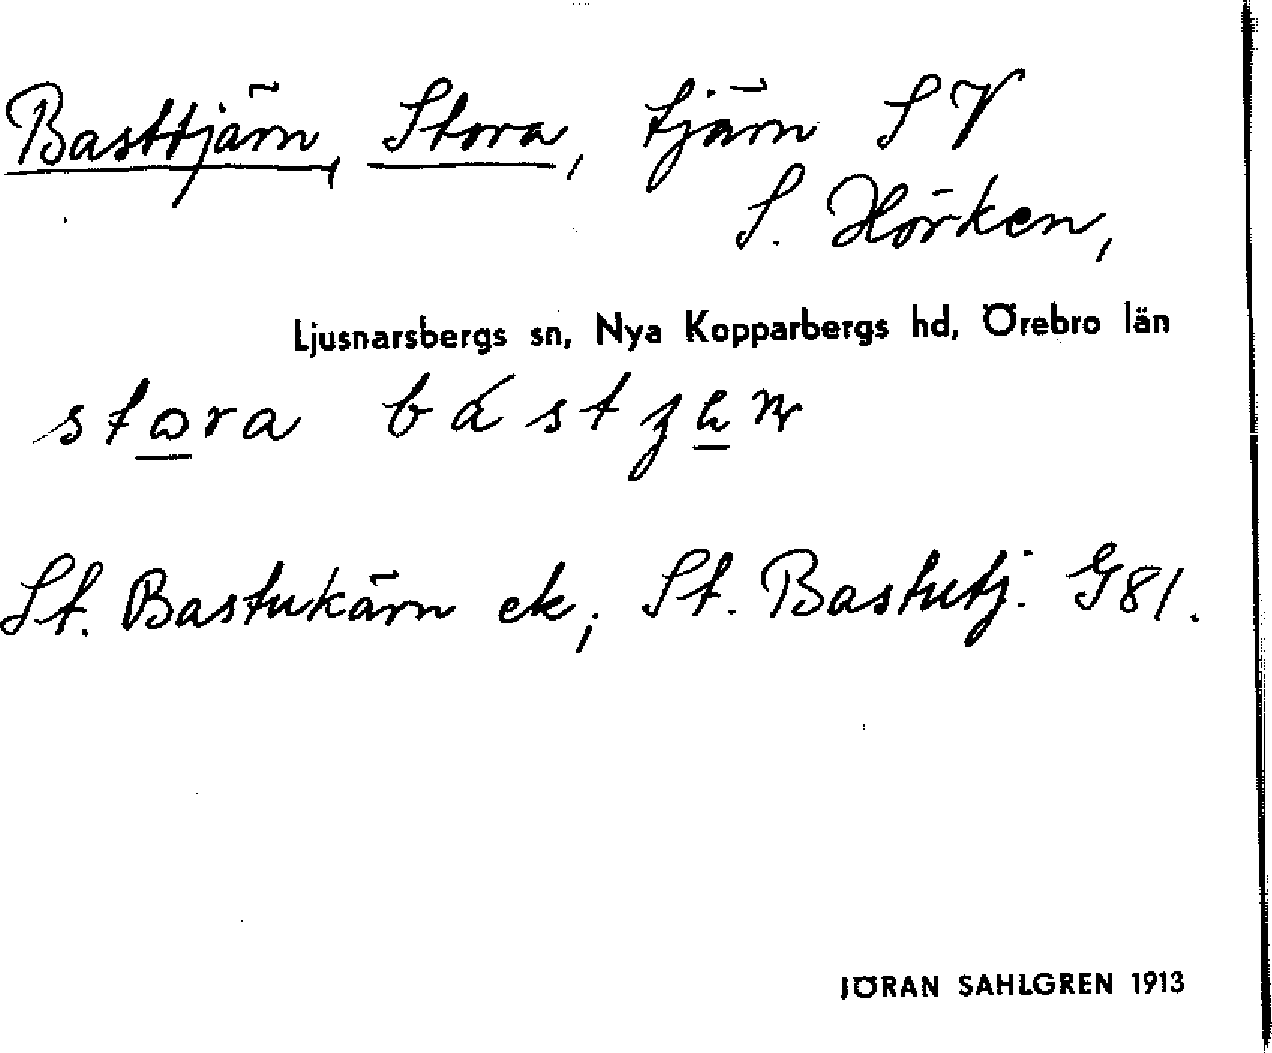 Basttjärn, Stora, tjärn SV
S. Hörken,
Ljusnarsbergs sn, Nya Kopparbergs hd, Örebro län
stora
St. Bastukärn ek; St. Bastutj. G81.
JÖRAN SAHLGREN 1913